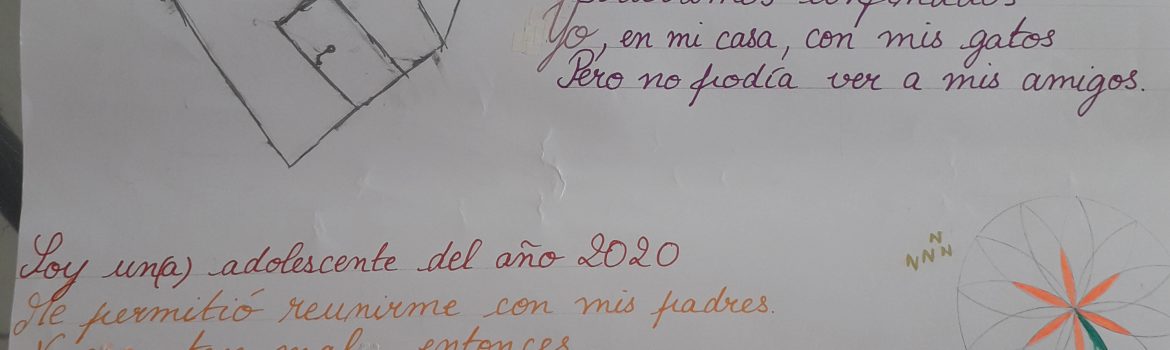 Yo, en mi casa, con mis gatos
Pero no podía ver a mis amigos.
Soy un(a) adolescente del año 2020
N
N N N
Me permitió reunirme con mis padres.
entonces